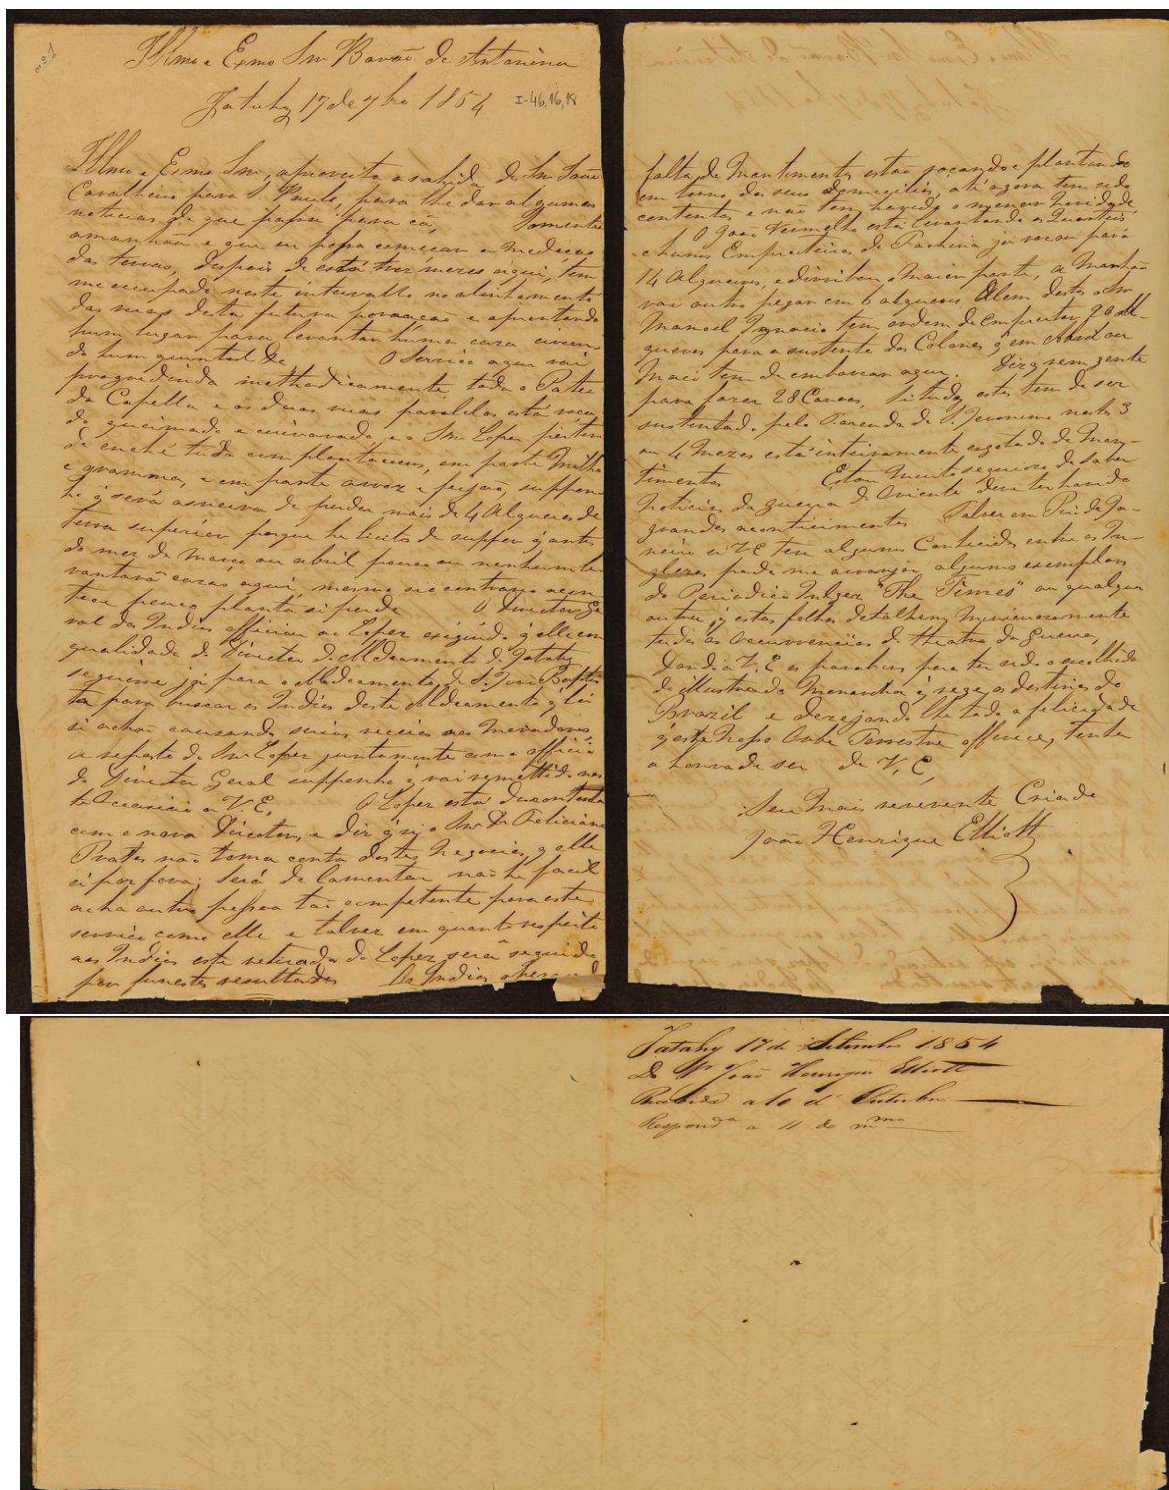 nº 1
Illmo e Exmo Snr Barão de Antonina
Jatahy 17 de 7bro 1854
I-46,16,18
Illmo e Exmo Snr, aproveito a sahida do Snr João
Cavalheiro para S. Paulo, para lhe dar algumas
noticias do que passa para cá, Somente
amanhãa e que eu posso começar a medição
das terras, despois de está trez mezes aqui, tem
me occupado neste intervallo no alinhamento
das ruas desta futura povoação e apontando
hum lugar para levantar huma caza
do hum quintal de O Serviço aqui vai
progredindo methodicamente, todo o Pateo
da Capella e as duas ruas parallelas está roça
do queimado e encoivarado, e o Snr Lopez
de enché tudo com plantacoens, em parte Milho
e gramma, e em parte arroz e feijão, suppon
ho q será asneira de perder mais de 4 Alqueires de
terra superior porque he licito de suppor q antes
do mez de Março ou abril pouca ou nenhuma
vantará cazas aqui, mesmo se o contrario acon
teça pouca planta si perde O Director Ge
ral dos Indios officiou ao Lopez exigindo q elle em
qualidade de Director do Aldeamento de Jatahy
seguisse já para o Aldeamento de S. João Baptis
ta para buscar os Indios deste Aldeamento q lá
si achão causando serios receios aos moradores
a resposta do Snr Lopez juntamente com o officio
do Director Geral supponho q vai remettido nes
ta Occasião a V. E, O Lopez está descontente
com o novo Director, e diz q si o Snr Dr Feliciano
Prates não toma conta deste Negocio, q elle
si poz fora; será de lamentar não he facil
acha outra pessoa tão competente para este
serviço como elle e talvez em quanto respeito
aos Indios esta retirada do Lopez será seguido
por funestos resultados Os Indios apezar d
falta de Mantimentos estão roçando e plantando
em torno dos seus domicilios, até agora tem sido
contentes e não tem havido a menor novidade
O João está levantando os Quarteis
e huns Empreiteiros de Fachina já roçou para
14 Alqueires, e a Maior parte, a Manhãa
vai outro pegar em 6 alqueres Alem destes o Snr
Manoel Ignacio tem ordem de Empreitar 20 Al-
queres para o sustento dos Colonos q em Abril ou
Maio tem de embarcar aqui. Diz q vem gente
para fazer 28 Canoas, tudo estes tem de ser
sustentado pela Fazenda de S. Jeronimo nestes 3
ou 4 Mezes está inteiramente exgotado de Man-
timentos Estou Muito sequioso de saber
Noticias da guerra do Oriente deve ter havido
grandes acontecimentos Talvez em Rio de Ja-
neiro si V E tem algumas Conhecidos entre os In-
glezes pode me arranjar algumas exemplares
do Periodico Inglez "The Times" ou qualquer
outro; q estas folhas detalhem Minuciosamente
todas as occurrencias do theatro da guerra,
Dando a V. E os parabens por ter sido o escolhido
do illustrado Monarcha q rege os destinos do
Brazil e dezejando lhe toda a felicidade
q este Nosso Orbe Terrestre offerece, tenho
a honra de ser de V, E,
Seu Mais reverente Criado
João Henrique Elliott
Jatahy 17 de Setembro 1854
Do Sr João Henrique Elliott
Recebida a 10 d' Outubro
Respondª a 11 do mmo